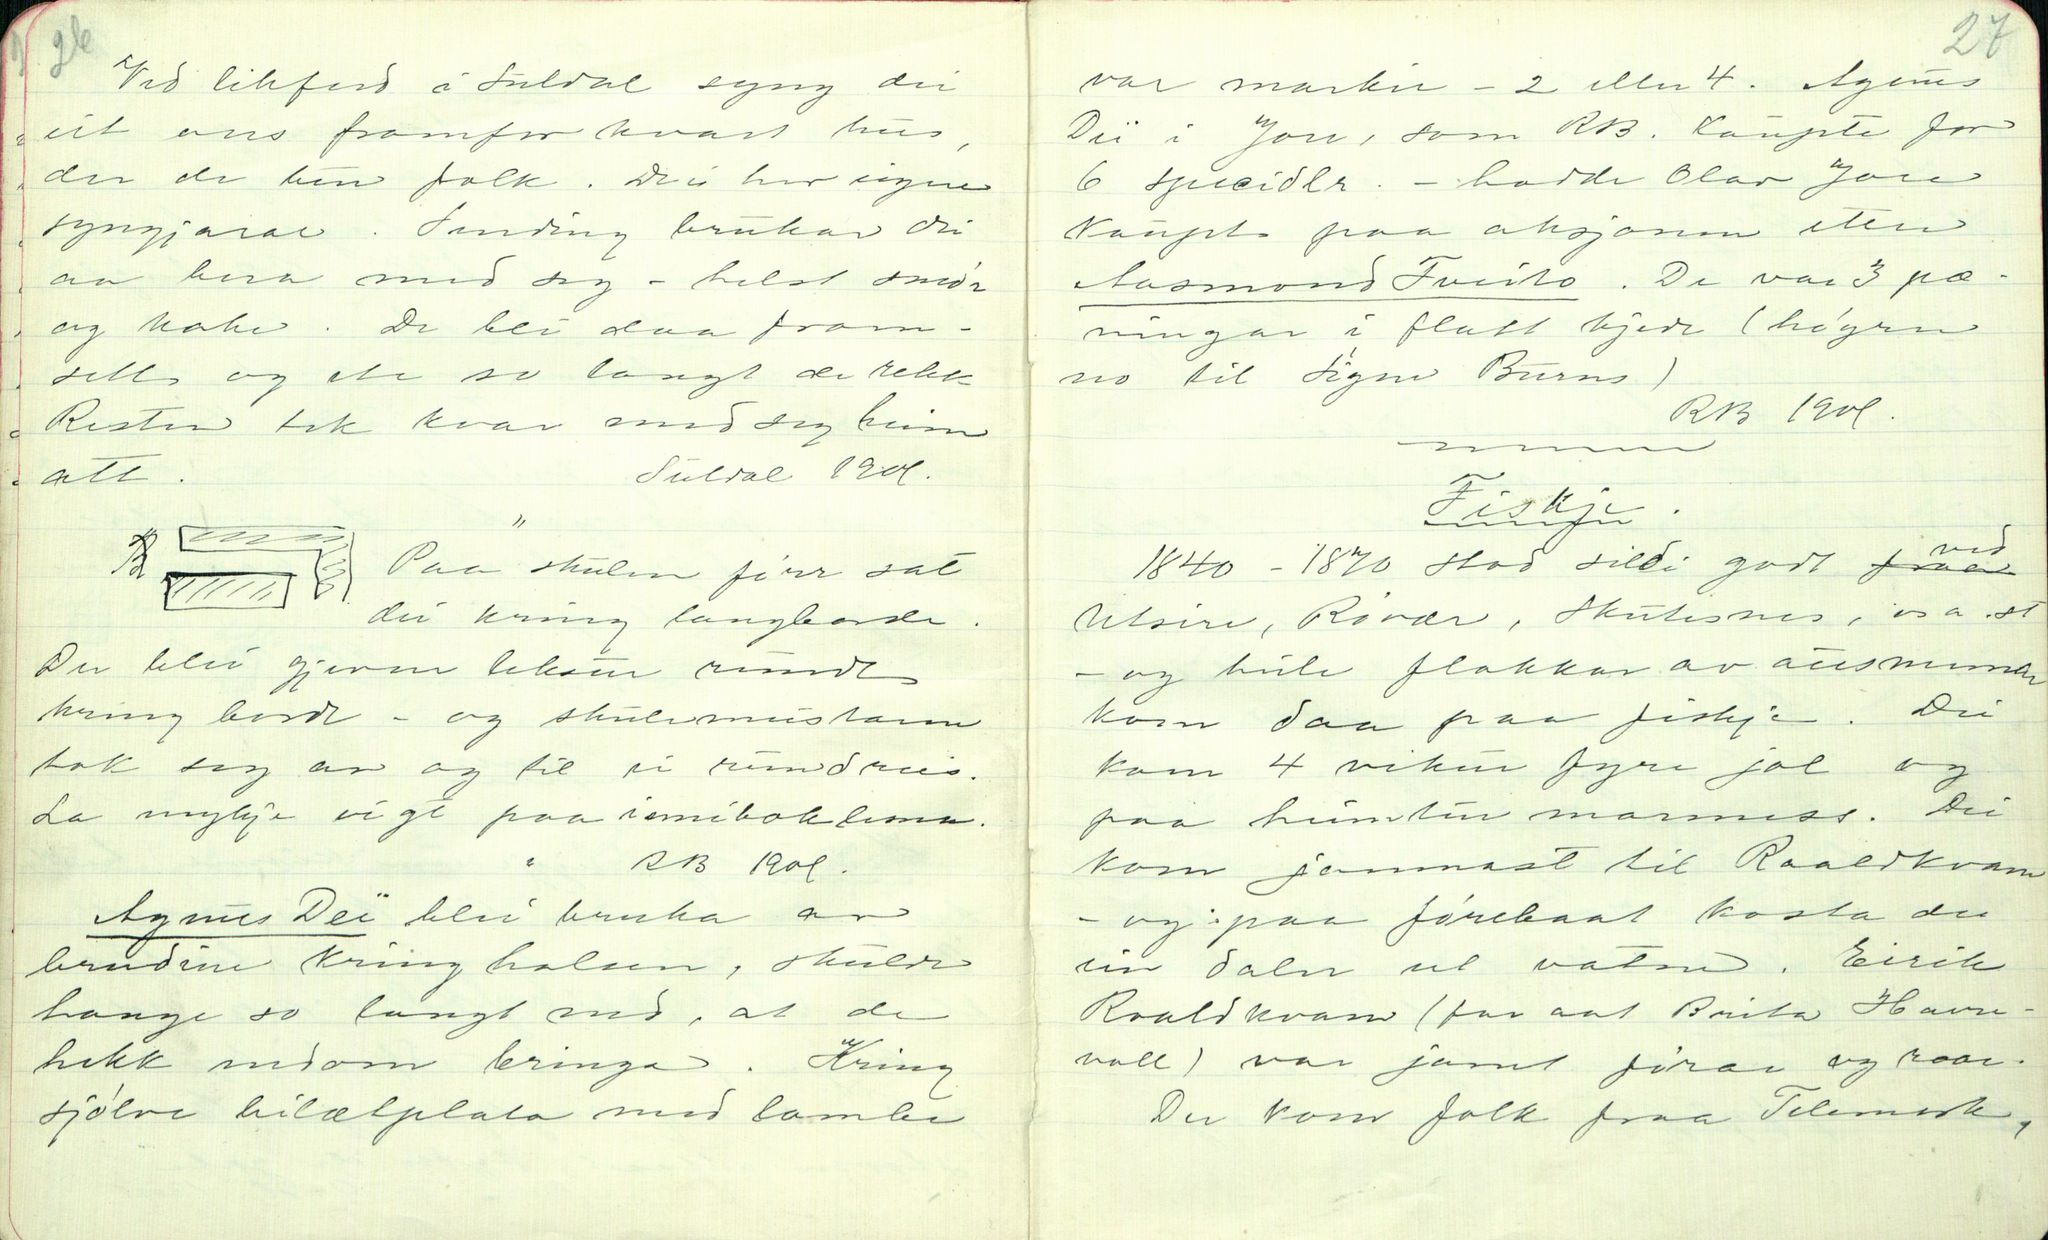 26
Ved likferd i Suldal syng dei
eit vers framfor kvart hus,
der de bur folk. Dei hev eigne
syngjarar. Sending brukar dei
aa bera med seg - helst smør
og kake. De blei daa fram-
sett og ete so langt de rekk
Resten tek kvar med seg heim
att. Suldal 1901.
"
Paa skulen fyrr sat
dei kring langborde.
Der blei gjerne leksur rundt
kring bord - og skulemeistaren
tok seg av og til ei rundreis.
La mykje vigt paa inniboklema.
" RB 1901.
Agnus Dei blei bruka av
brudine kring halsen, skulde
hange so langt ned, at de
hekk nedom bringa. Kring
sjølve bilætplata med lambe
27
var merkir - 2 eller 4. Agnus
Dei i Jore, som RB. kaupte for
6 specidlr. - hadde Olav Jore
kaupt paa aksjonen etter
Aasmond Tveito. De var 3 pæ-
ningar i flatt kjede (høyrer
no til Signe Burns)
RB 1901.
Fiskje.
1840 - 1870 stod sildi godt ved
Utsire, Røvær, Skutesnes, o s a. st
- og heile flokkar av ausmenner
kom daa paa fiskje. Dei
kom 4 vikur fyre jol og
paa heimtur marmess. Dei
kom jamnast til Roaldkvam
- og paa førebaat kosta dei
ein daler ut vatne. Eirik
Roaldkvam (far aat Brita Havre-
voll) var jamt førar og roar.
Der kom folk fraa Telemark,